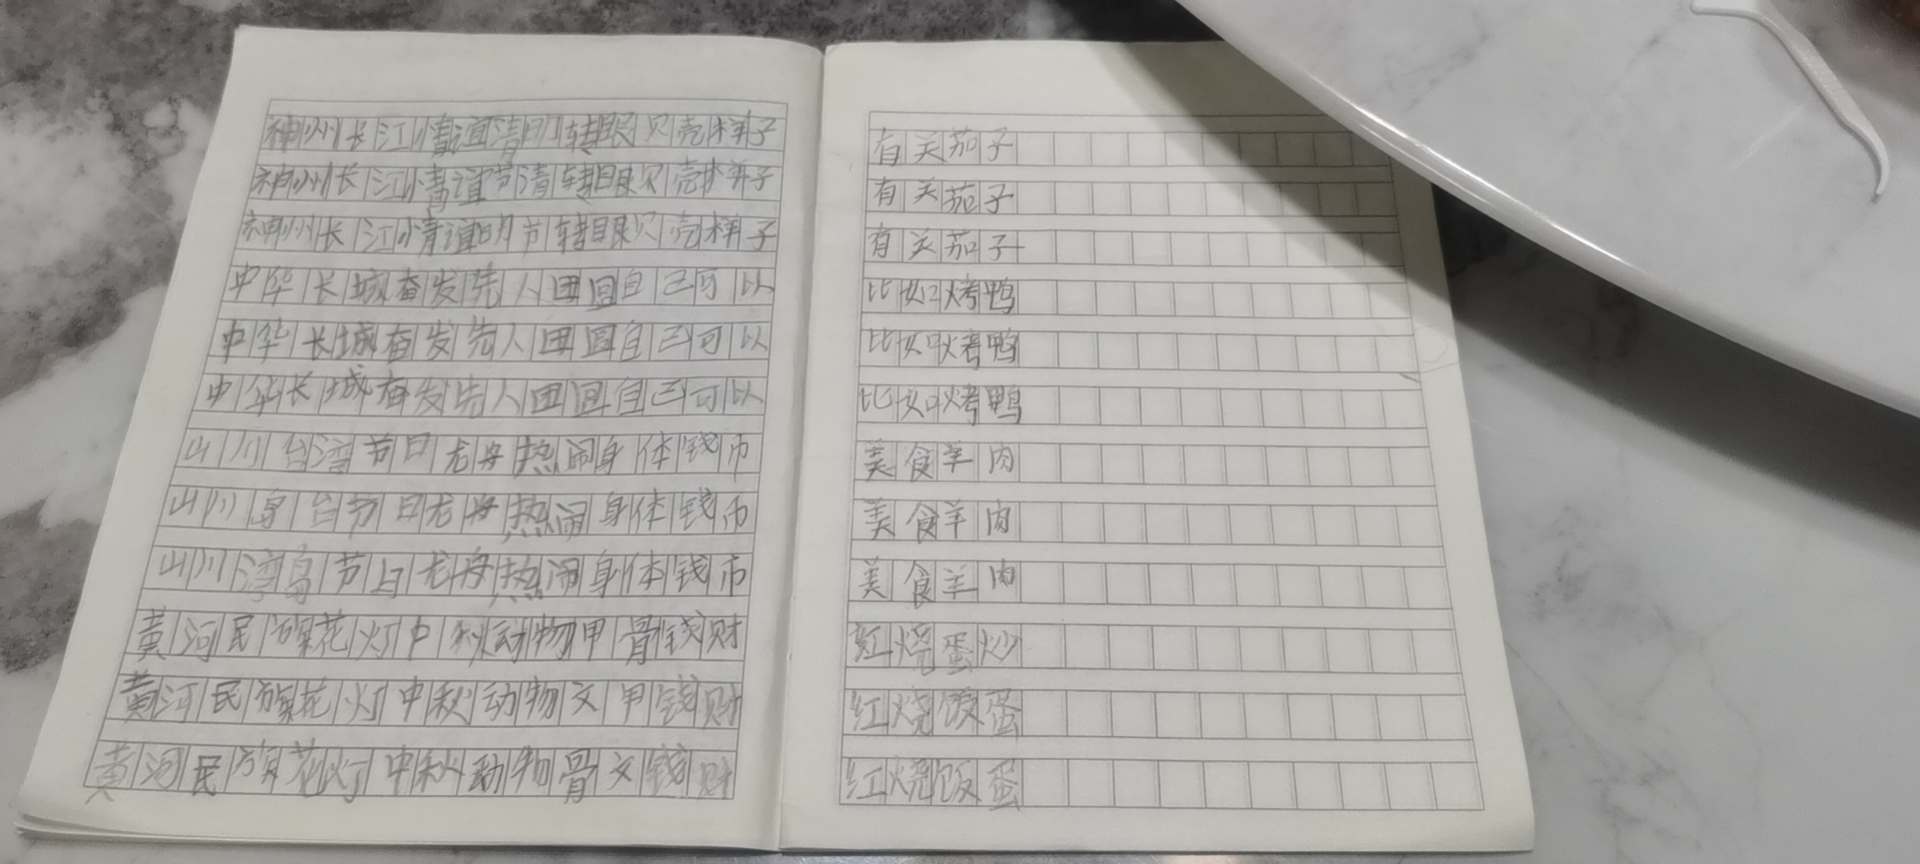 神州长江情谊清明转眼贝壳样子
神州长江情谊节清转眼贝壳样子
神州长江情谊明节转眼贝壳样子
中华长城奋发先人团圆自己可以
中华长城奋发先人团圆自己可以
中华长城奋发先人团圆自己可以
山川台湾节日龙舟热闹身体钱币
山川身台节日龙舟热闹身体钱币
山川湾岛节日龙舟热闹身体钱币
黄河民族花灯中秋动物甲骨钱财
黄河民族花灯中秋动物文甲钱财
黄河民族花灯中秋动物骨文钱财
有关茄子
有关茄子
有关茄子
比如烤鸭
比如烤鸭
比如烤鸭
美食羊肉
美食羊肉
美食羊肉
红烧蛋炒
红烧饭蛋
红烧饭蛋